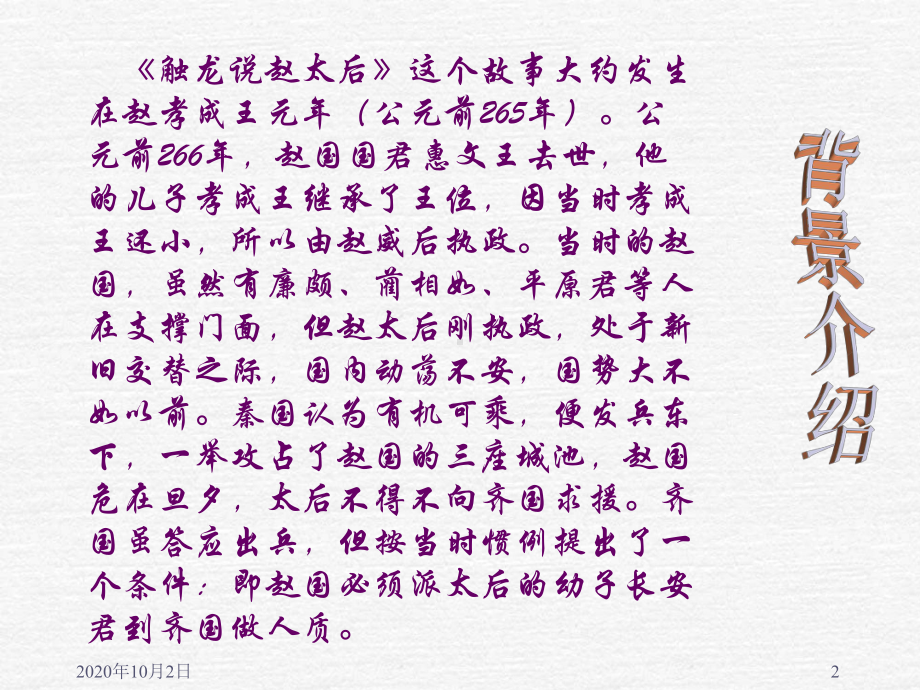 《触龙说赵太后》这个故事大约发生
在赵孝成王元年（公元前265年）。公
元前266年，赵国国君惠文王去世，他
的儿子孝成王继承了王位，因当时孝成
王还小，所以由赵威后执政。当时的赵
国，虽然有廉颇、蔺相如、平原君等人
在支撑门面，但赵太后刚执政，处于新
旧交替之际，国内动荡不安，国势大不
如以前。秦国认为有机可乘，便发兵东
下，一举攻占了赵国的三座城池，赵国
危在旦夕，太后不得不向齐国求援。齐
国虽答应出兵，但按当时惯例提出了一
个条件：即赵国必须派太后的幼子长安
君到齐国做人质。
背景介绍
2020年10月2日
2